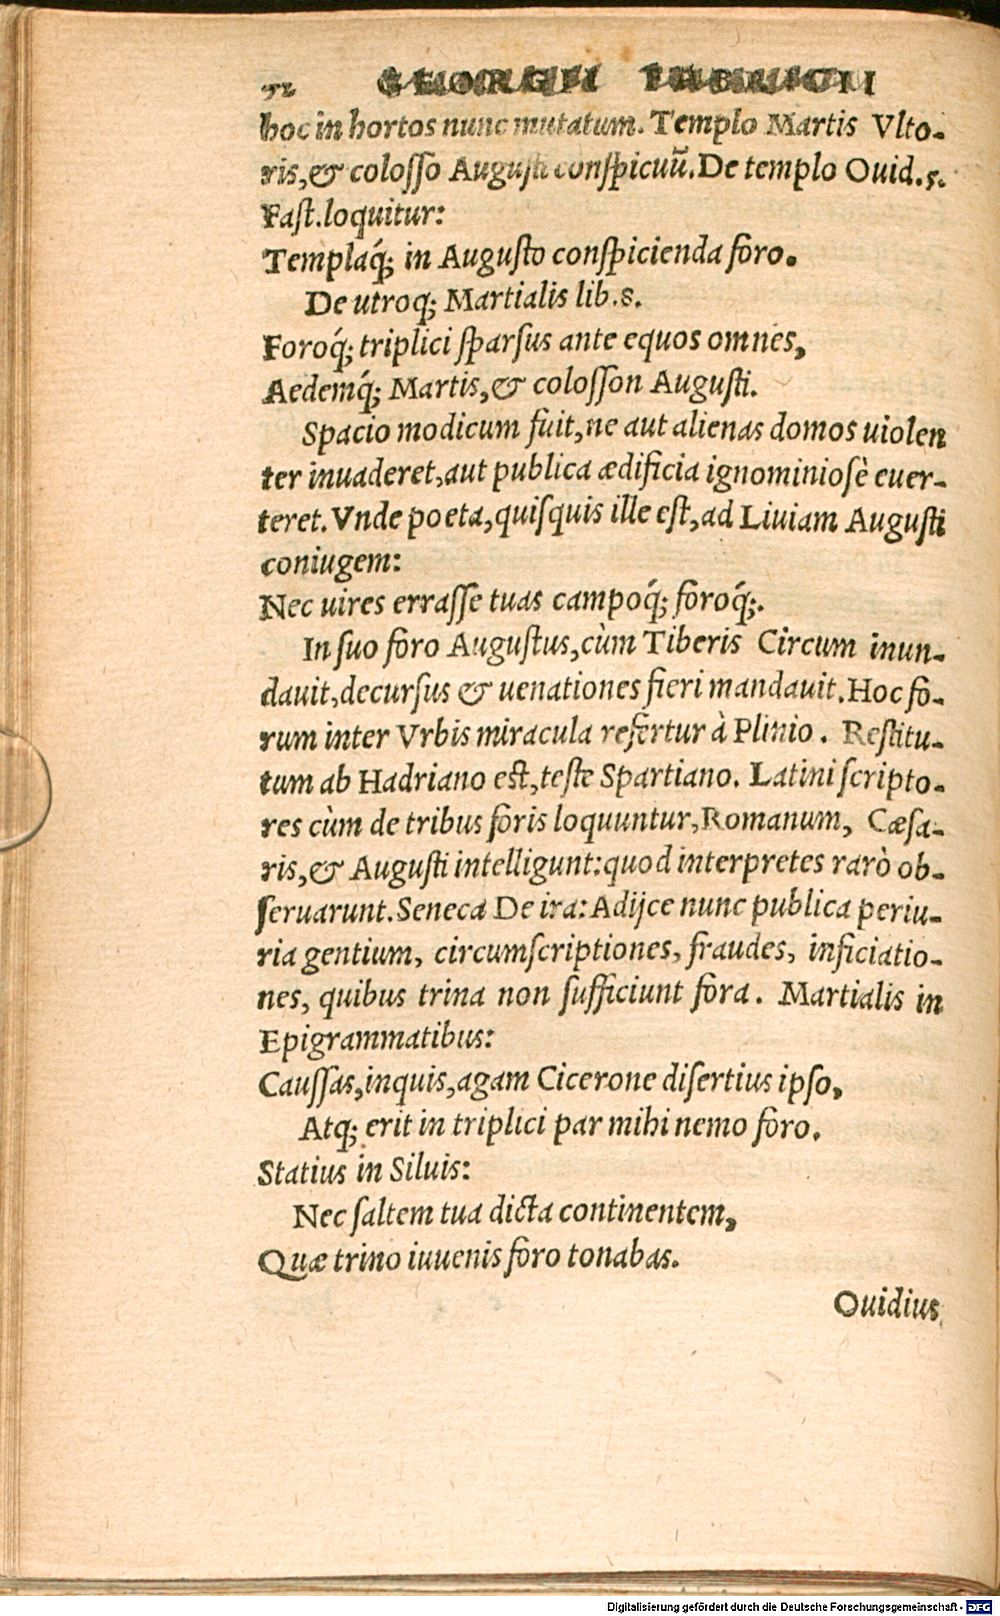 52 GEORGII FABRICII
hoc in hortos nunc mutatum. Templo Martis Vlto-
ris,& colosso Augusti conspicuũ. De templo Ouid. 5.
Fast. loquitur:
Templaq́; in Augusto conspicienda foro.
De utroq; Martialis lib. 8.
Foroq́; triplici sparsus ante equos omnes,
Aedemq́; Martis,& colosson Augusti.
Spacio modicum fuit, ne aut alienas domos uiolen
ter inuaderet, aut publica ædificia ignominiosè euer-
teret. Vnde poeta, quisquis ille est, ad Liuiam Augusti
coniugem:
Nec uires errasse tuas campoq́; foroq́;.
In suo foro Augustus, cùm Tiberis Circum inun-
dauit, decursus & uenationes fieri mandauit. Hoc fo-
rum inter Vrbis miracula refertur à Plinio. Restitu-
tum ab Hadriano est, teste Spartiano. Latini scripto-
res cùm de tribus foris loquuntur, Romanum, Cæsa-
ris,& Augusti intelligunt: quod interpretes rarò ob-
seruarunt. Seneca De ira: Adijce nunc publica periu-
ria gentium, circumscriptiones, fraudes, inficiatio-
nes, quibus trina non sufficiunt fora. Martialis in
Epigrammatibus:
Caussas, inquis, agam Cicerone disertius ipso,
Atq; erit in triplici par mihi nemo foro.
Statius in Siluis:
Nec saltem tua dicta continentem,
Quæ trino iuuenis foro tonabas.
Ouidius
Digitalisierung gefördert durch die Deutsche Forschungsgemeinschaft - DFG